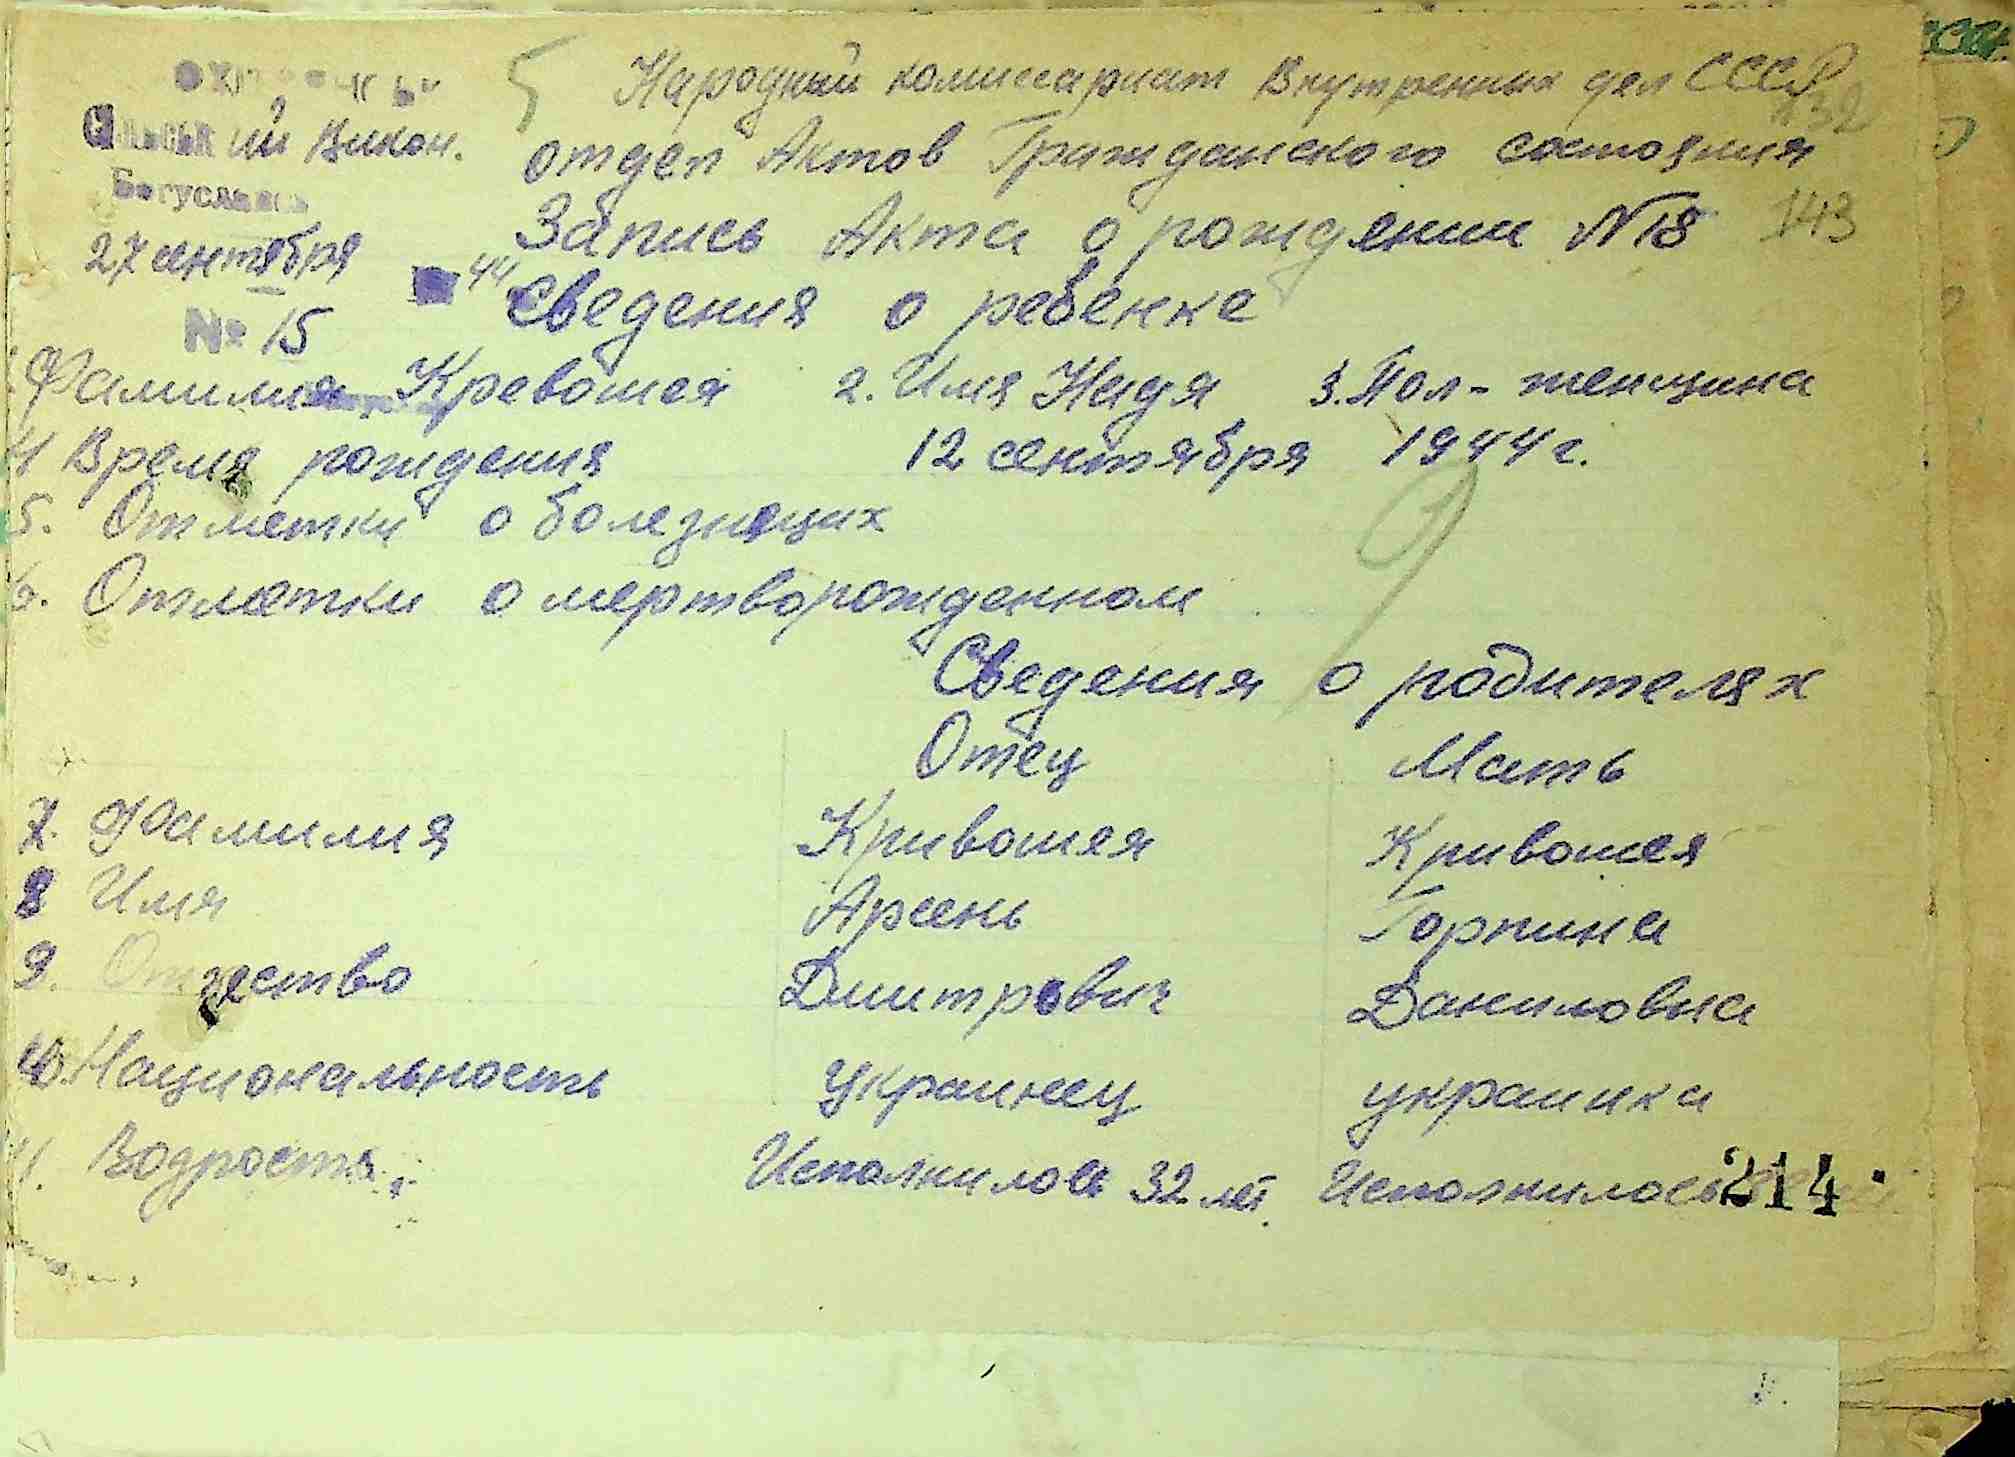 Народний комиссариат Внутренных дел СССР
132
ий Викон.
отдел Актов Гражданского состояния
Богуслав
Запись Акта о рождении №18
143
27 сентября 44
Сведения о ребенке
№ 15
Фамилия Кревошея 2. Имя Надя 3. Пол - женщина
4 Время рождения 12 сентября 1944 г.
5. Отметки о болезнецих
6. Отметки о мертворожденном
Сведения о родителях
Отец Мать
7. Фамилия Кривошея Кривошея
8 Имя Арсень Горпина
9. Отчество Дмитрович Даниловна
10. Национальность украинец украинка
11. Водрость Исполнилось 32 лет. Исполнилось
214